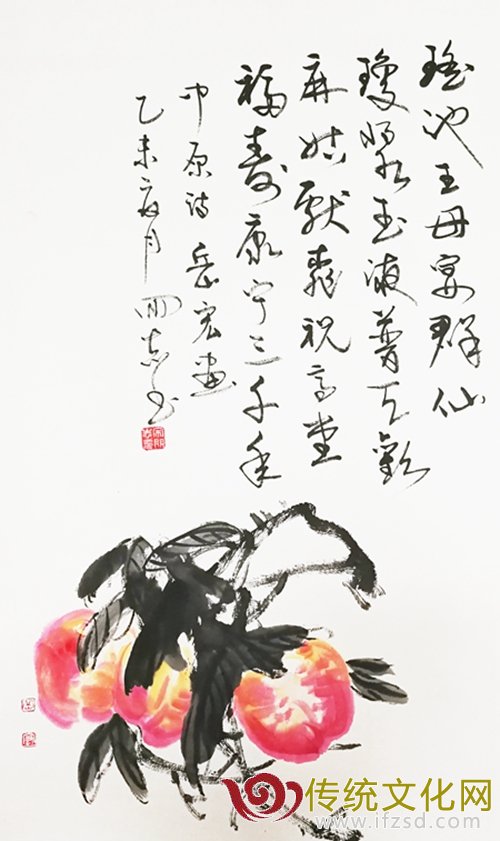 瑶池王母宴群仙
琼浆玉液普天歡
麻姑献桃祝高堂
福寿康宁三千年
中原诗 岳宏画
乙未夏月 志书
传统文化网
www.ifzsd.com